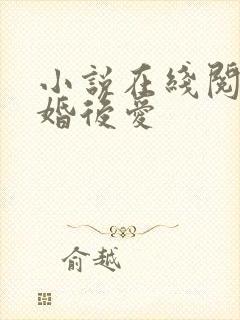 小説在綫閱
婚後愛
俞越